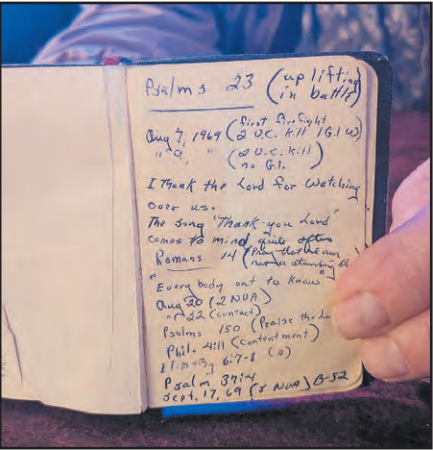 Psalms 23 (up lifting
in battle)
Aug 7, 1969 (first firefight
2 V.C. kill 1 G.I. W)
" 9, " (2 V.C. kill
no G.I.)
I Thank the Lord for watching
over us.
The song "Thank you Lord"
comes to mind quite often
Romans 14 (Pray that we are
a stumbling
"Every body ont to know"
Aug 20 (2 NVA)
" 22 (contact)
Psalms 150 (Praise the Lo
Phil. 4:11 (contentment)
I Timothy 6:7-8 (")
Psalm 37:4
Sept. 17, 69 (5 NVA) B-52